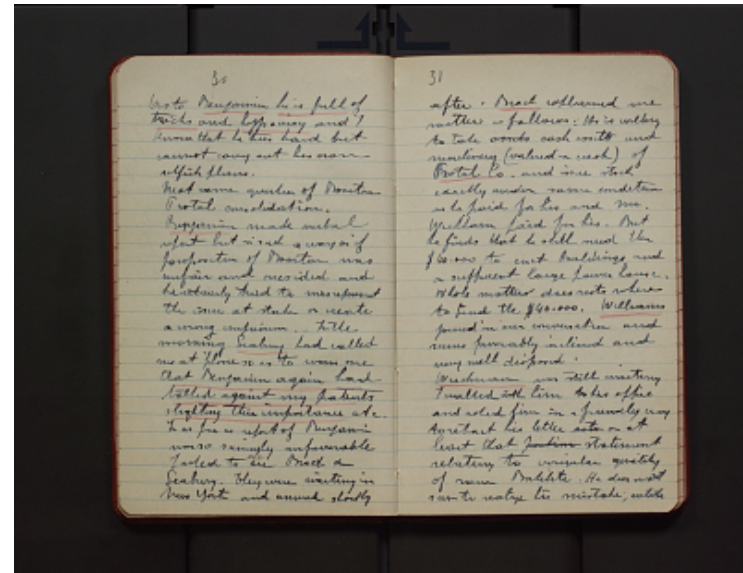 30
As to Benjamin he is full of
tricks and
know that he tries hard but
cannot carry out his own
selfish plans.
Next came question of Boonton
Protal consolidation.
Benjamin made verbal
report but in such a way as if
proposition of Boonton was
unfair and onesided and
he obviously tried to misrepresent
the case at stake or create
a wrong impression. In the
morning Seabury had called
me at phone so as to warn me
that Benjamin again had
talked against my patents
slighting their importance etc.
As far as report of Benjamin
was so seemingly unfavorable
I asked to see Brock &
Seabury. They were waiting in
New York and arrived shortly
31
after. Brock explained me
matter as follows: He is willing
to take
machinery (valued as cash) of
Protal Co. and issue stock
exactly under same condition
as he paid for his and mr.
William paid for his. But
he finds that he still need
$40.000 to erect buildings and
a sufficient large power house.
Whole matter does rests where
to find the $40.000. Williams
joined in our conversation and
seems favorably inclined and
very well disposed.
was still waiting
I walked with him to his office
and asked him in a friendly way
to retract his letter or at
least that statement
relating to quality
of resin Bakelite. He does not
seem to realize his mistake,